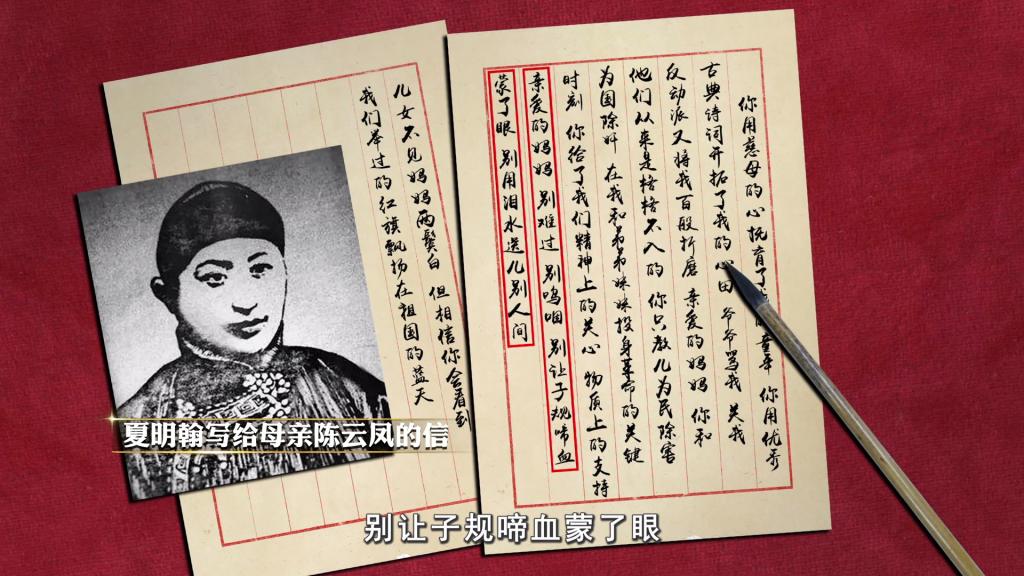 你用慈母的心抚育了我的童年 你用优秀
古典诗词开拓了我的心田 爷爷骂我 关我
反动派又将我百般折磨 亲爱的妈妈 你和
他们从来是格格不入的 你只教儿为民除害
为国除奸 在我和弟弟妹妹投身革命的关键
时刻 你给了我们精神上的关心 物质上的支持
亲爱的妈妈 别难过 别呜咽 别让子规啼血
蒙了眼 别用泪水送儿别人间
儿女不见妈妈两鬓白 但相信你会看到
我们举过的红旗飘扬在祖国的蓝天
夏明翰写给母亲陈云凤的信
别让子规啼血蒙了眼